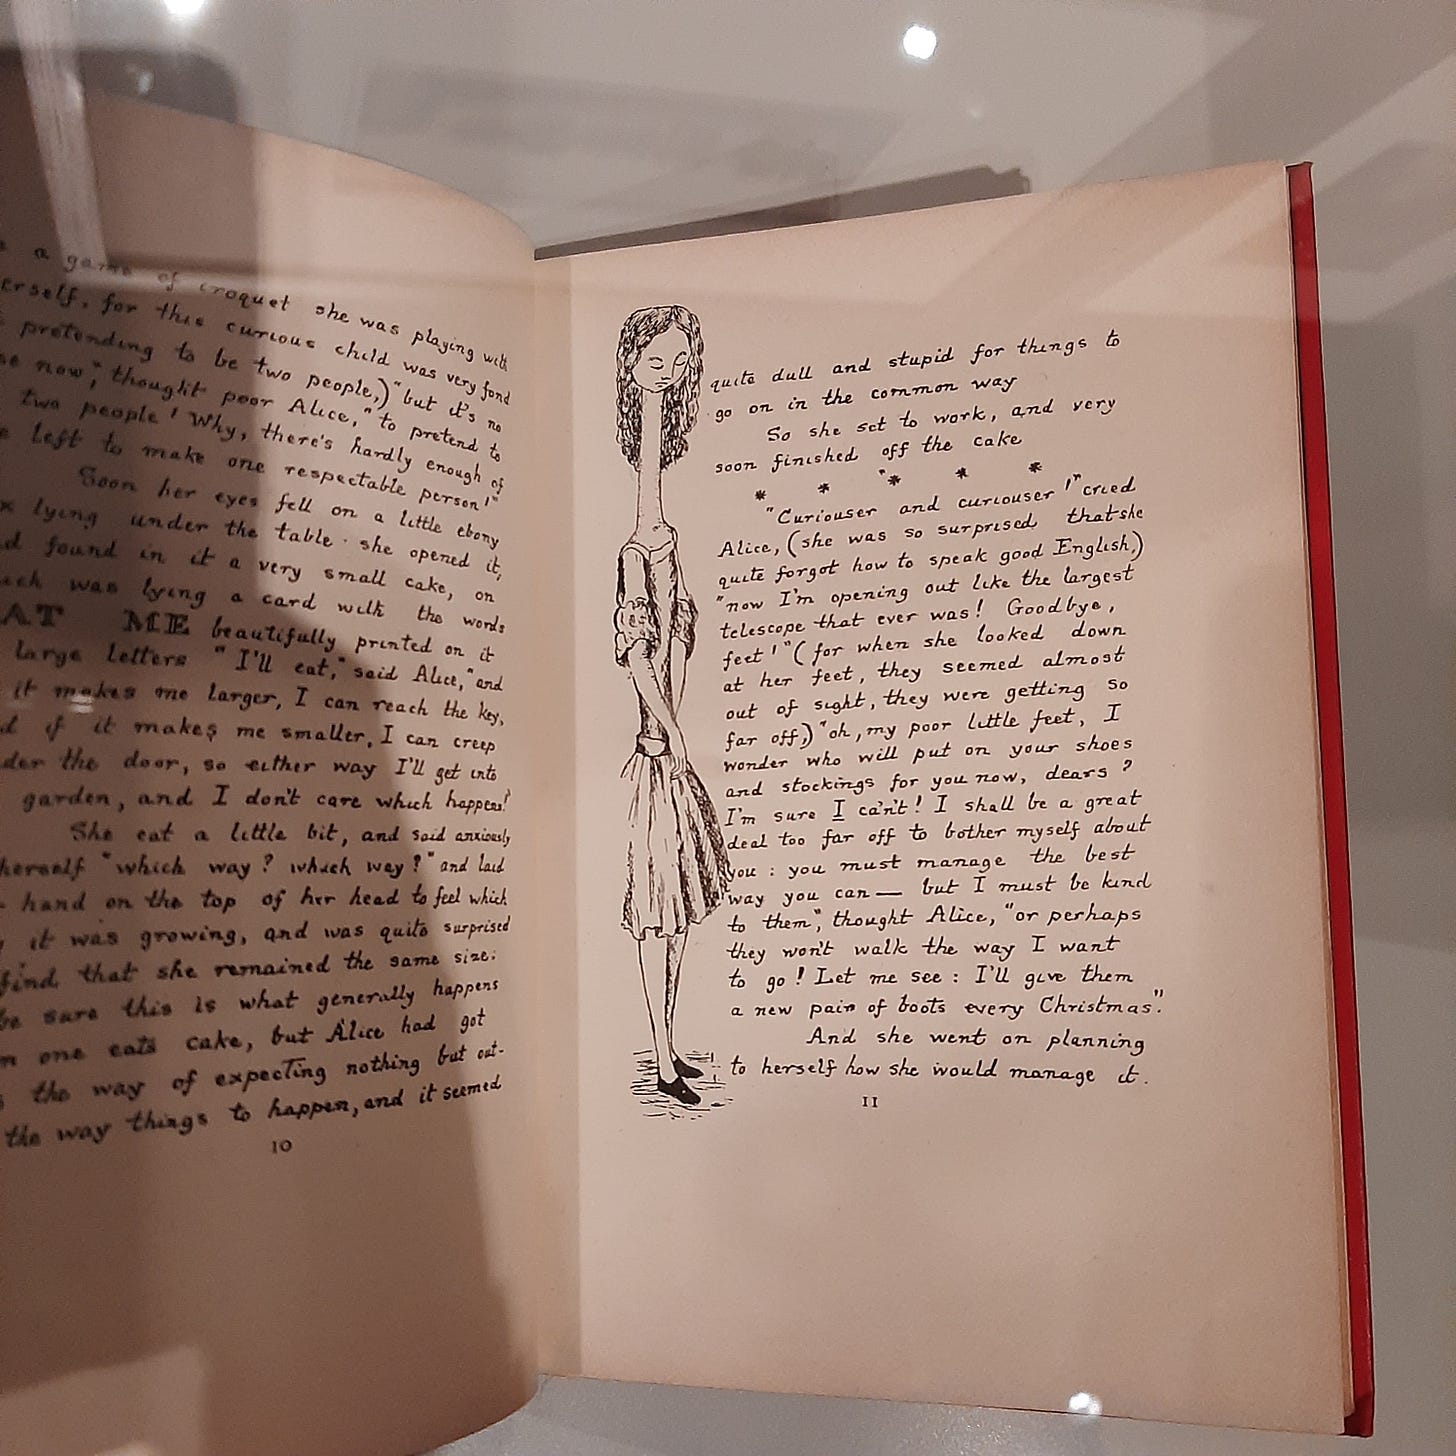 a game of croquet she was playing with
erself, for this curious child was very fond
pretending to be two people,) "but it's no
se now," thought poor Alice, "to pretend to
two people! Why, there's hardly enough of
e left to make one respectable person!"
Soon her eyes fell on a little ebony
x lying under the table. she opened it,
d found in it a very small cake, on
ich was lying a card with the words
AT ME beautifully printed on it
large letters "I'll eat," said Alice, "and
it makes me larger, I can reach the key,
d if it makes me smaller, I can creep
der the door, so either way I'll get into
garden, and I don't care which happens!
She eat a little bit, and said anxiously
herself "which way? which way?" and laid
hand on the top of her head to feel which
it was growing, and was quite surprised
find that she remained the same size:
be sure this is what generally happens
n one eats cake, but Alice had got
the way of expecting nothing but out-
the way things to happen, and it seemed
10
quite dull and stupid for things to
go on in the common way
So she set to work, and very
soon finished off the cake
* * * * *
"Curiouser and curiouser!" cried
Alice, (she was so surprised that she
quite forgot how to speak good English,)
"now I'm opening out like the largest
telescope that ever was! Goodbye,
feet!" (for when she looked down
at her feet, they seemed almost
out of sight, they were getting so
far off,) "oh, my poor little feet, I
wonder who will put on your shoes
and stockings for you now, dears?
I'm sure I can't! I shall be a great
deal too far off to bother myself about
you: you must manage the best
way you can— but I must be kind
to them", thought Alice, "or perhaps
they won't walk the way I want
to go! Let me see: I'll give them
a new pair of boots every Christmas".
And she went on planning
to herself how she would manage it.
11